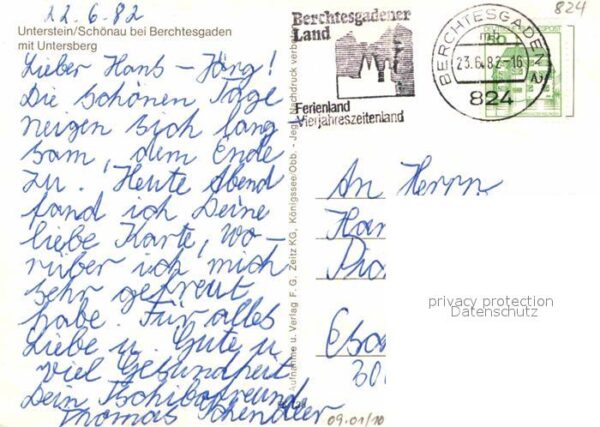 22.6.82
Unterstein/Schönau bei Berchtesgaden
mit Untersberg
Lieber Hans-Jörg!
Die schönen Tage
neigen sich lang
sam, dem Ende
zu. Heute Abend
fand ich Deine
liebe Karte, wo-
rüber ich mich
sehr gefreut
habe. Für alles
Liebe u. Gute u.
viel Gesundheit
Dein
Thomas
Aufnahme u. Verlag F. G. Zeitz KG, Königssee/Obb. - Jegl. Nachdruck verb
Berchtesgadener
Land
Ferienland
Vierjahreszeitenland
BERCHTESGADEN
mb
23.6.82-16
824
824
An Herrn
Han
30
privacy protection
Datenschutz
09.01/10